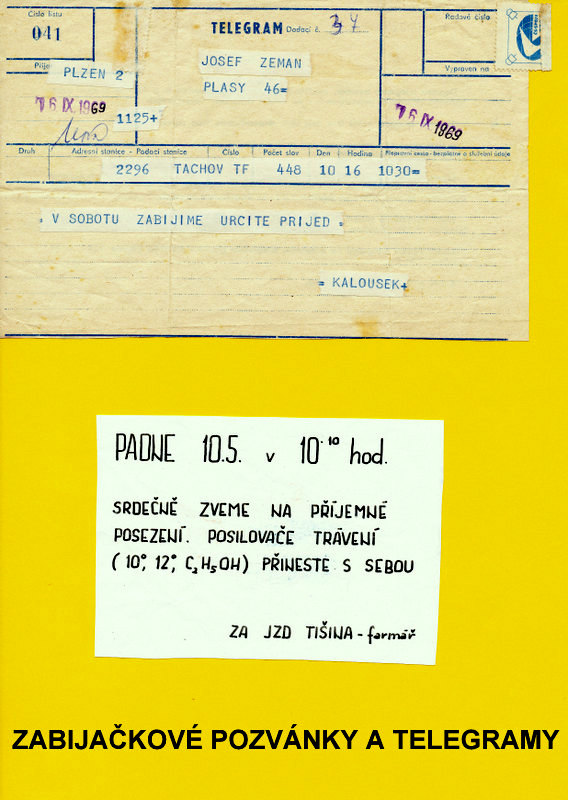 Číslo listu
041
TELEGRAM Dodací č. 37
Řadové číslo
Přije
PLZEN 2
JOSEF ZEMAN
PLASY 46=
Vypraven na
76 IX 1969
1125+
76 IX 1969
Druh Adresní stanice - Podací stanice Číslo Počet slov Den Hodina Přepravní cesta - bezplatné a služební údaje
2296 TACHOV TF 448 10 16 1030=
= V SOBOTU ZABIJIME URCITE PRIJED =
= KALOUSEK+
PADNE 10.5. v 10¹⁰ hod.
SRDEČNĚ ZVEME NA PŘÍJEMNÉ
POSEZENÍ. POSILOVAČE TRÁVENÍ
(10°, 12°, C₂H₅OH) PŘINESTE S SEBOU
ZA JZD TIŠINA - farmář
ZABIJAČKOVÉ POZVÁNKY A TELEGRAMY